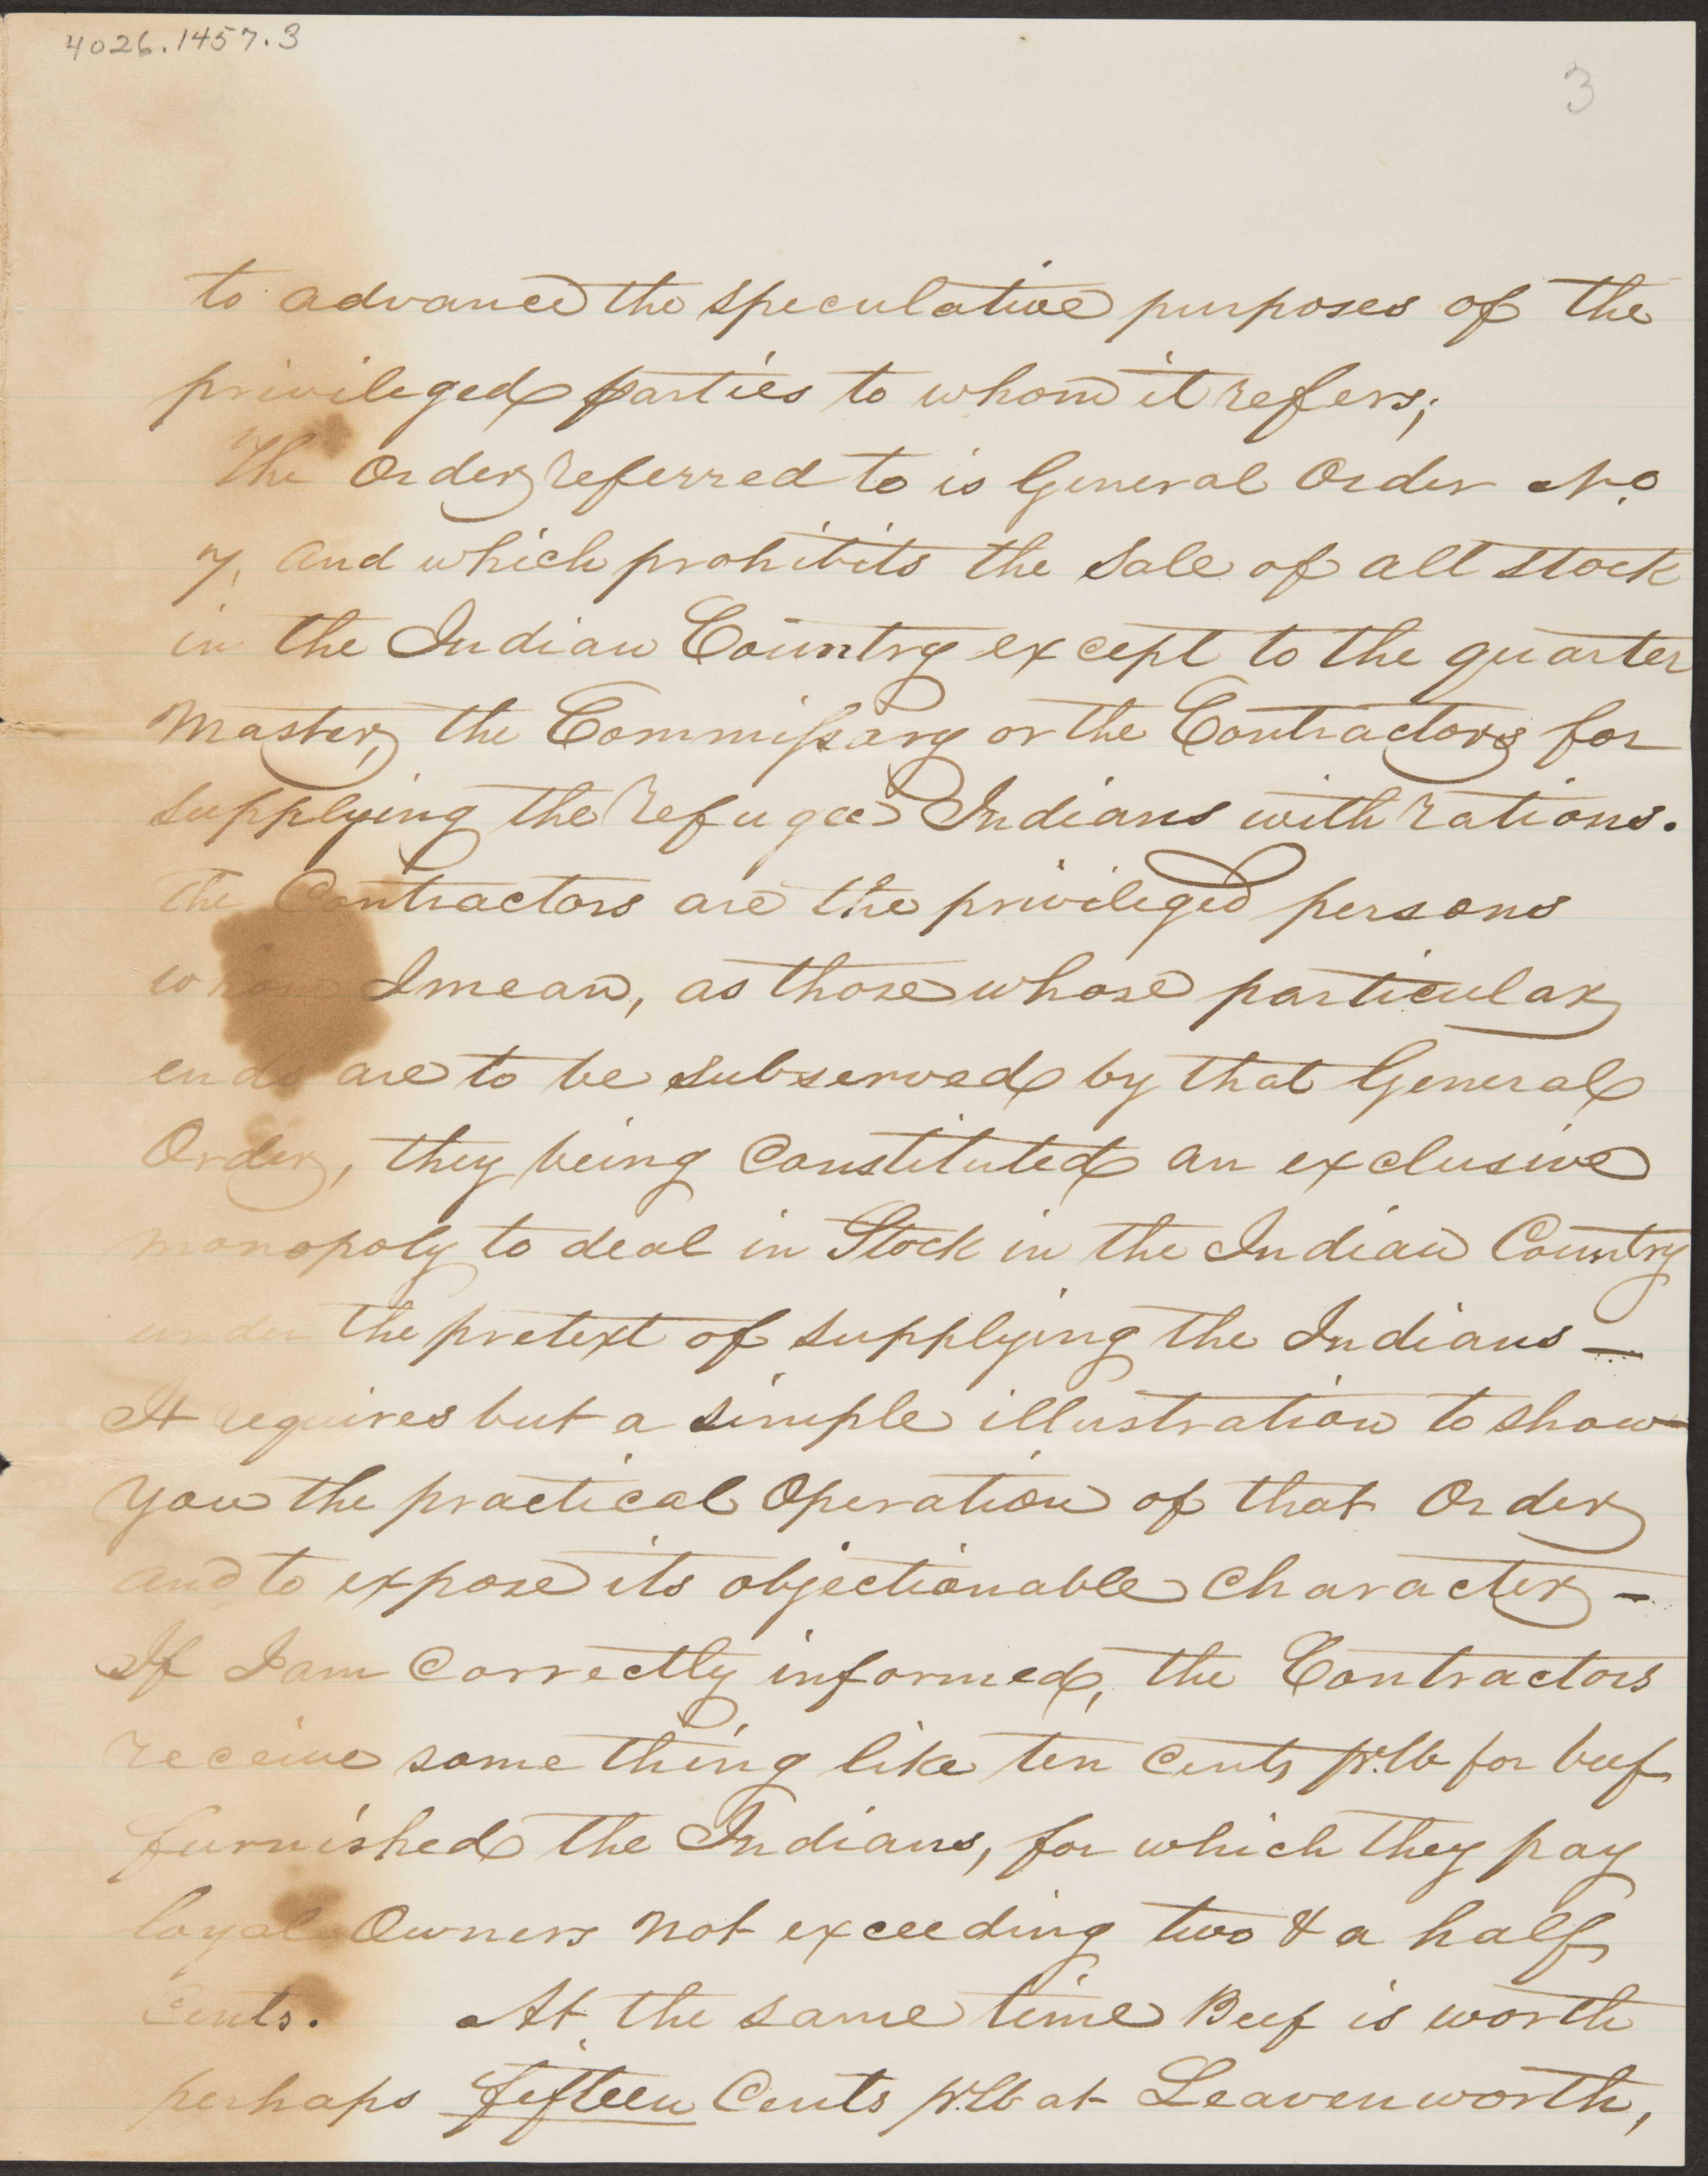 4026.1457.3
3
to advance the speculative purposes of the
privileged parties to whom it refers;
The Order referred to is General Order No.
7, and which prohibits the Sale of all stock
in the Indian Country except to the quarter
Master, the Commissary or the Contractors for
supplying the refugee Indians with rations.
The Contractors are the privileged persons
whom I mean, as those whose particular
ends are to be subserved by that General
Order, they being Constituted an exclusive
monopoly to deal in Stock in the Indian Country
under the pretext of supplying the Indians —
It requires but a simple illustration to show
you the practical Operation of that Order
and to expose its objectionable Character –
If I am Correctly informed, the Contractors
receive something like ten Cents pr. lb for beef
furnished the Indians, for which they pay
loyal Owners not exceeding two & a half
Cents. At the same time Beef is worth
perhaps fifteen Cents pr. lb at Leavenworth,